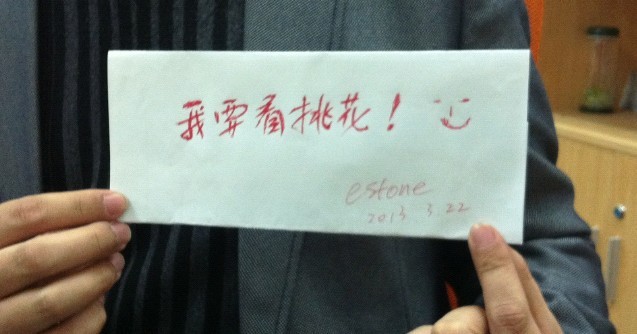 我要看挑花！
estone
2013 3 22